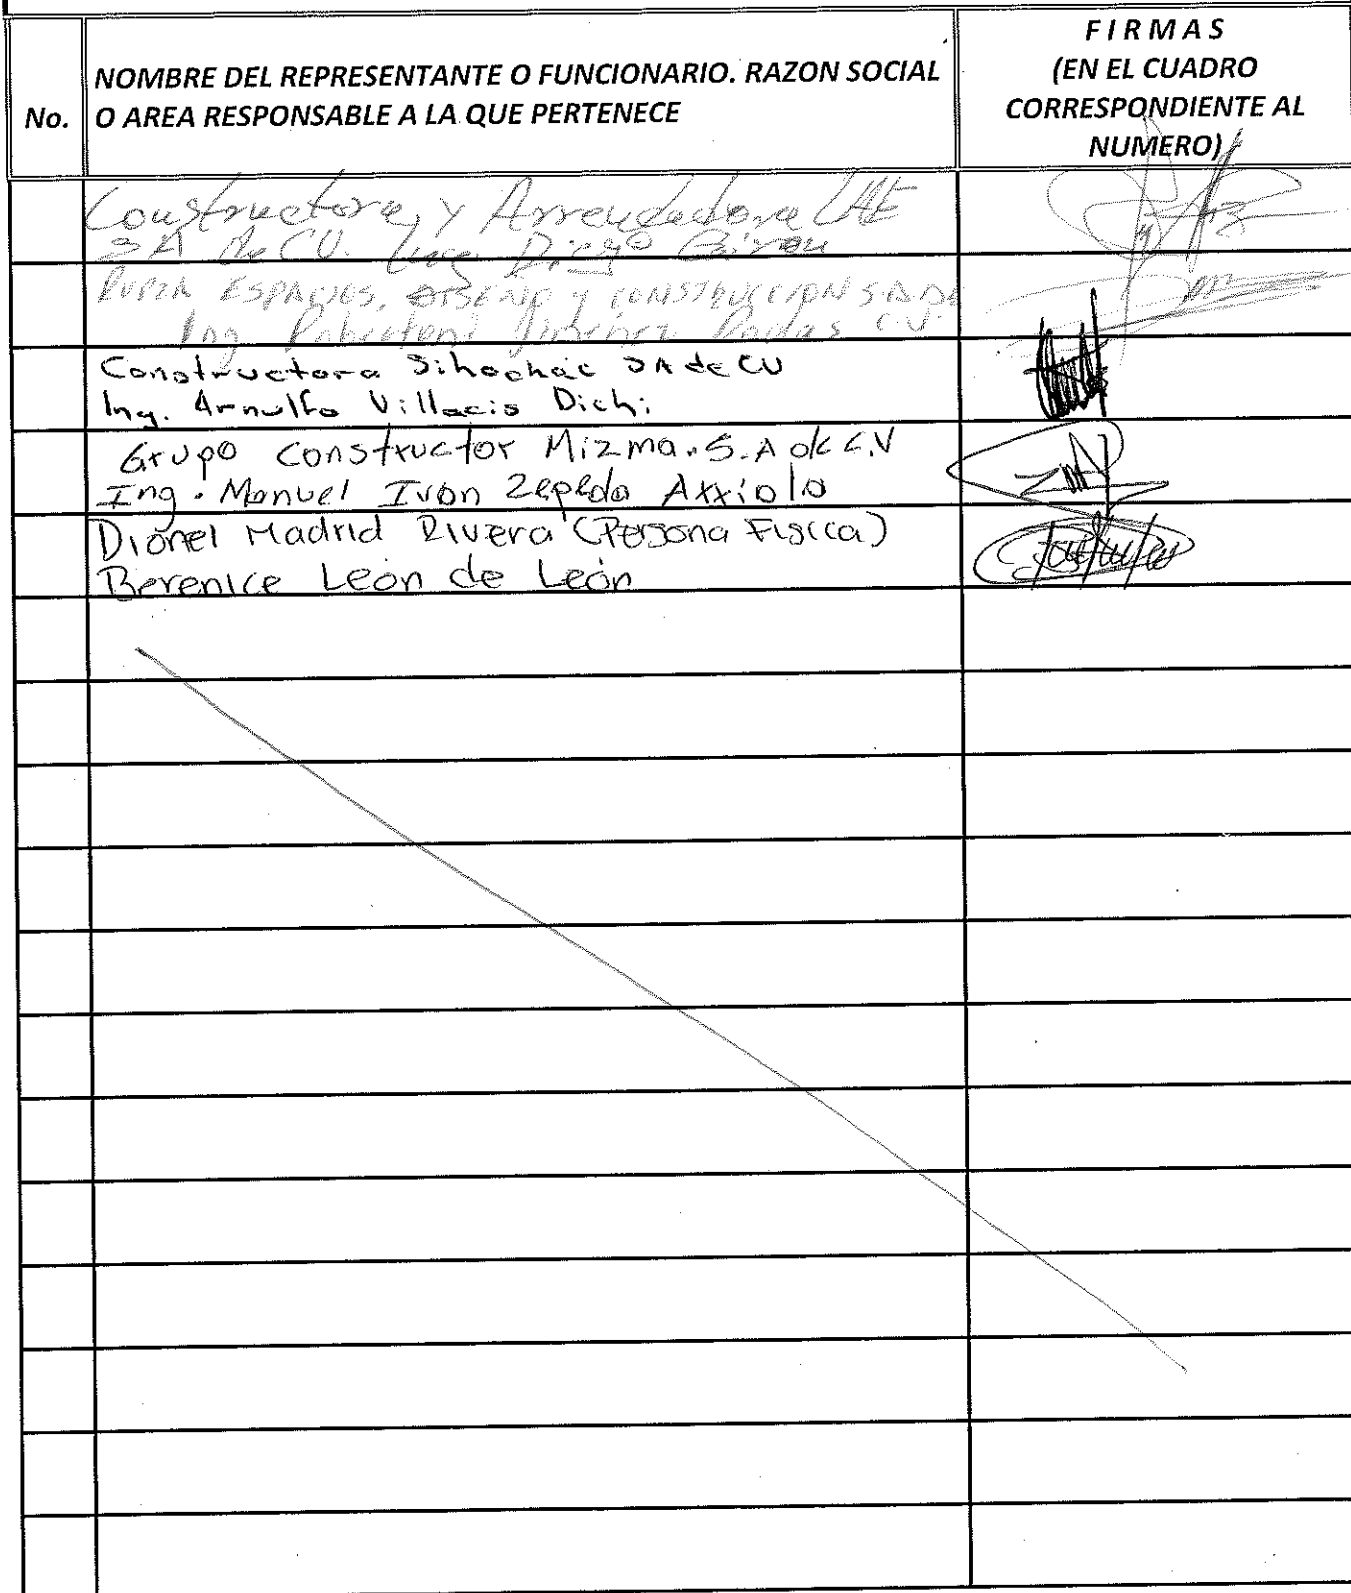 No.
NOMBRE DEL REPRESENTANTE O FUNCIONARIO. RAZON SOCIAL
O AREA RESPONSABLE A LA QUE PERTENECE
FIRMAS
(EN EL CUADRO
CORRESPONDIENTE AL
NUMERO)
Constructora y Arrendadora
SA de CV. Diego
ESPACIOS, DISEÑO y CONSTRUCCION SA DE
Ing. Jimenez C.V.
Constructora Sihochac SA de CV
Ing. Arnulfo Villacis Dichi
Grupo Constructor Mizma. S.A de C.V
Ing. Manuel Ivan Zepeda Arriola
Dionel Madrid Rivera (Persona Fisica)
Berenice León de León